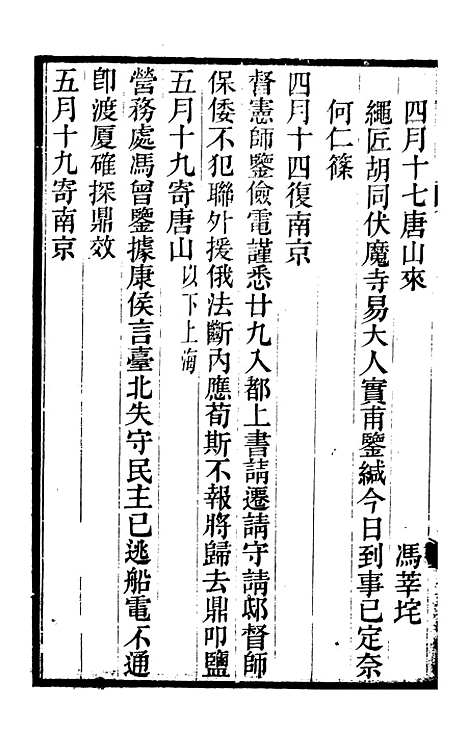 四月十七唐山來　馮莘垞
繩匠胡同伏魔寺易大人實甫鑒緘今日到事已定奈
何仁篠
四月十四復南京
督憲師鑒儉電謹悉廿九入都上書請遷請守請邸督師
保倭不犯聯外援俄法斷內應荀斯不報將歸去鼎叩鹽
五月十九寄唐山以下上海
營務處馮曾鑒據康侯言臺北失守民主已逃船電不通
卽渡厦確探鼎效
五月十九寄南京